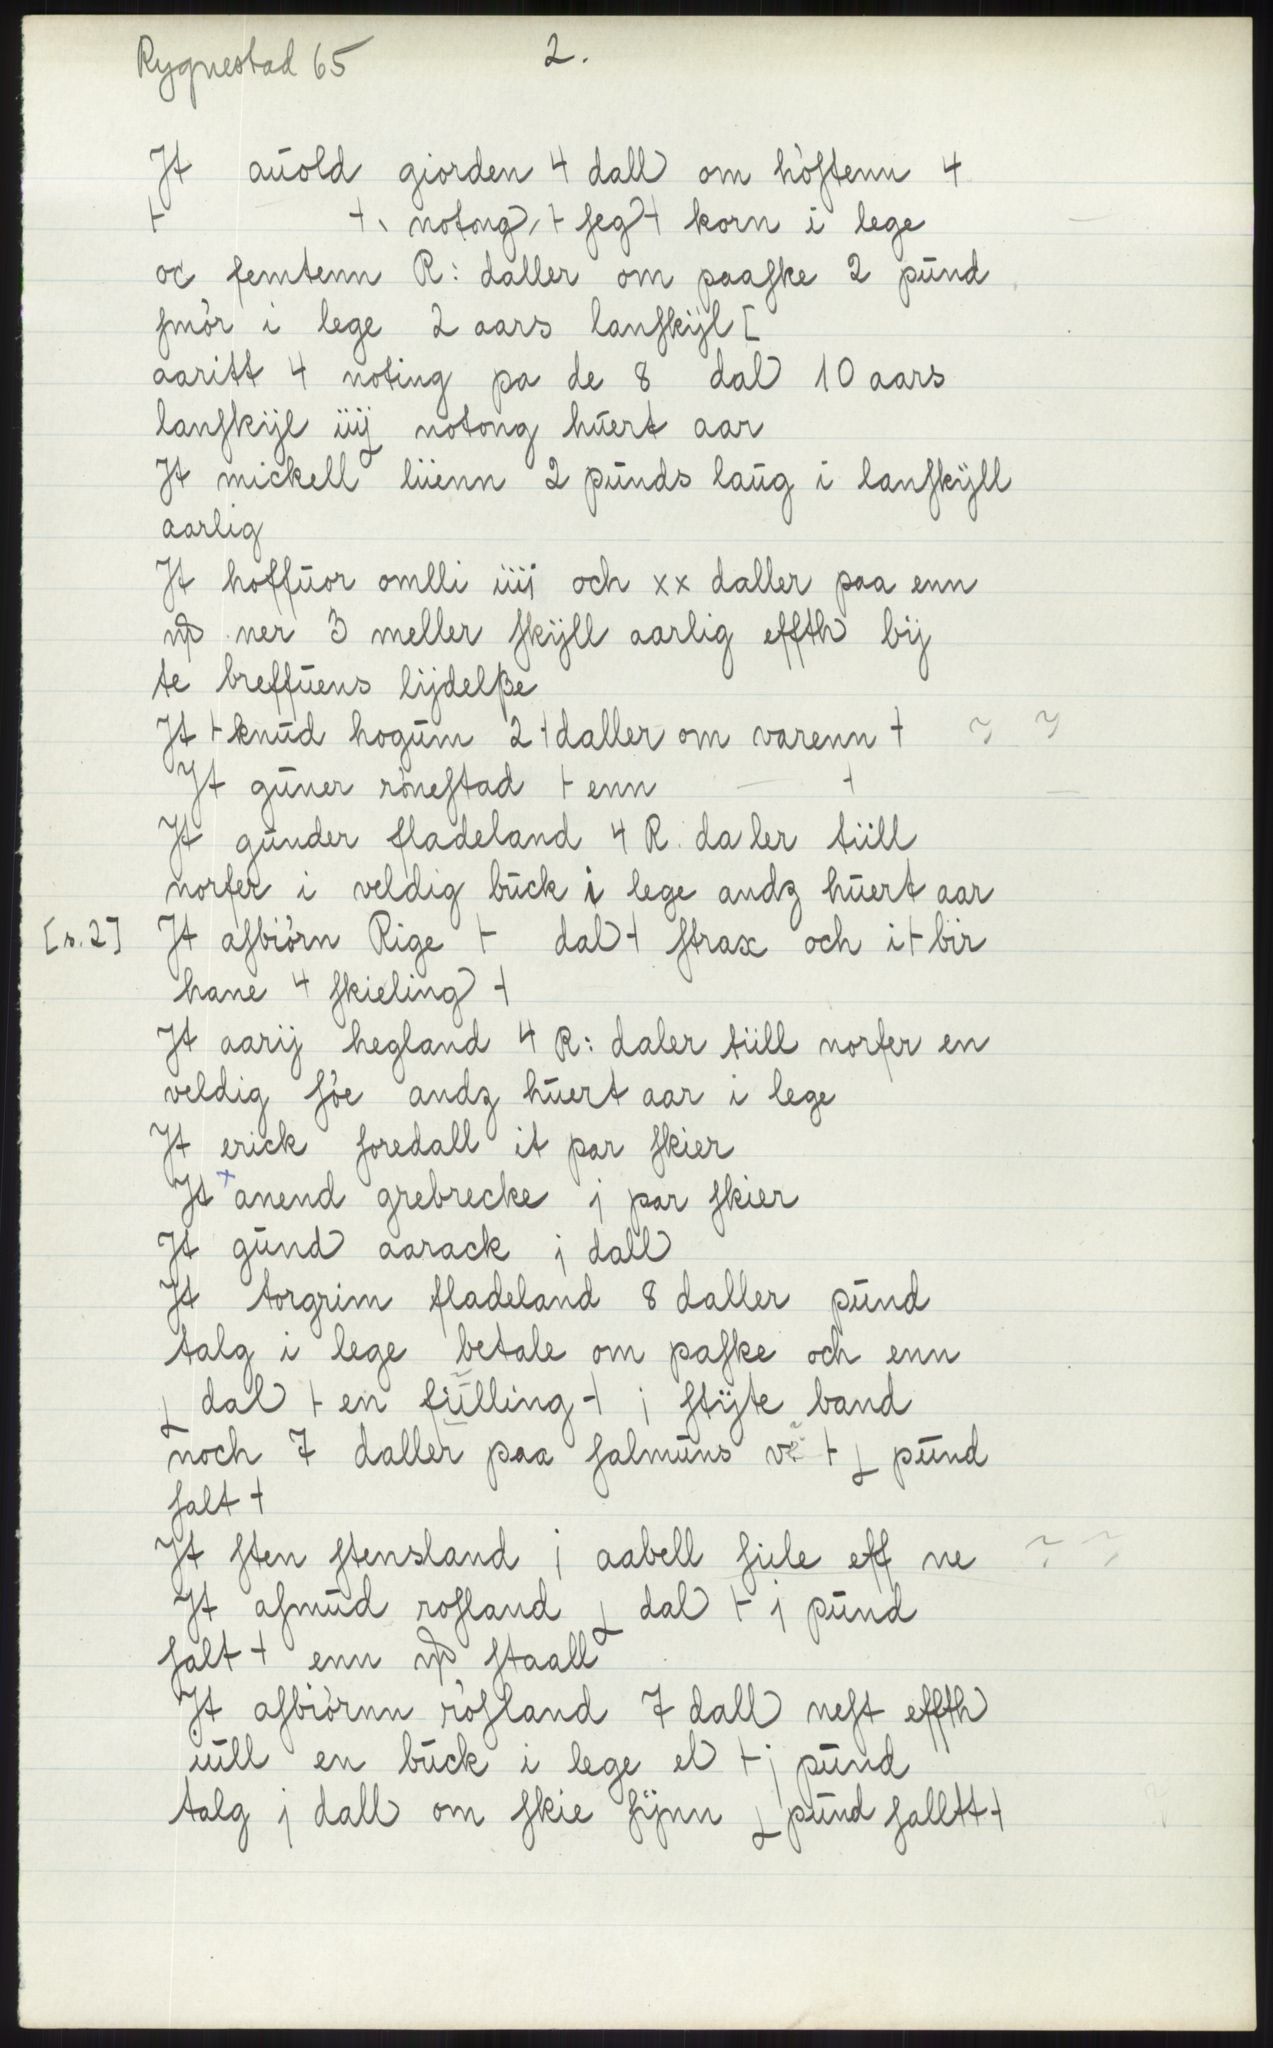 Rygnestad 65
2.
Jt auold giorden 4 dall om höftenn 4
⊢ ⊣ notong ⊢ seg ⊣ korn i lege
oc femtenn R: daller om paaſke 2 pund
ſmör i lege 2 aars lanſkijl [
aaritt 4 noting pa de 8 dal 10 aars
lanſkijl iiij notong huert aar
Jt mickell liienn 2 punds laug i lanſkÿll
aarlig
Jt hoffuor omlli iiij och xx daller paa enn
ner 3 meller ſkÿll aarlig effth bij
te breffuens lijdelße
Jt ⊢ knud hogum 2 ⊣ daller om varenn ⊣
Jt guner röneſtad ⊢ enn — ⊣
Jt gunder fladeland 4 R. daler tiill
norfer i veldig buck i lege andz huert aar
[s. 2] Jt aſbiörn Rige ⊢ dal ⊣ ſtrax och it ⊢ bir
hane 4 ſkieling ⊣
Jt aarij hegland 4 R: daler tiill norfer en
veldig ſöe andz huert aar i lege
Jt erick ſoredall it par ſkier
Jt x anend grebrecke j par ſkier
Jt gund aarack j dall
Jt torgrim fladeland 8 daller pund
talg i lege betale om paſke och enn
dal ⊢ en fiilling ⊣ j ſtÿte band
noch 7 daller paa ſalmuns ⊢ pund
ſalt ⊣
Jt ſten ſtensland j aabell ſiile eff ne
Jt aſmud roſland dal ⊢ j pund
ſalt ⊣ enn ſtaall
Jt aſbiörnn röſland 7 dall neſt effth
iull en buck i lege el ⊢ j pund
talg j dall om ſkie ſÿnn pund ſalltt ⊣